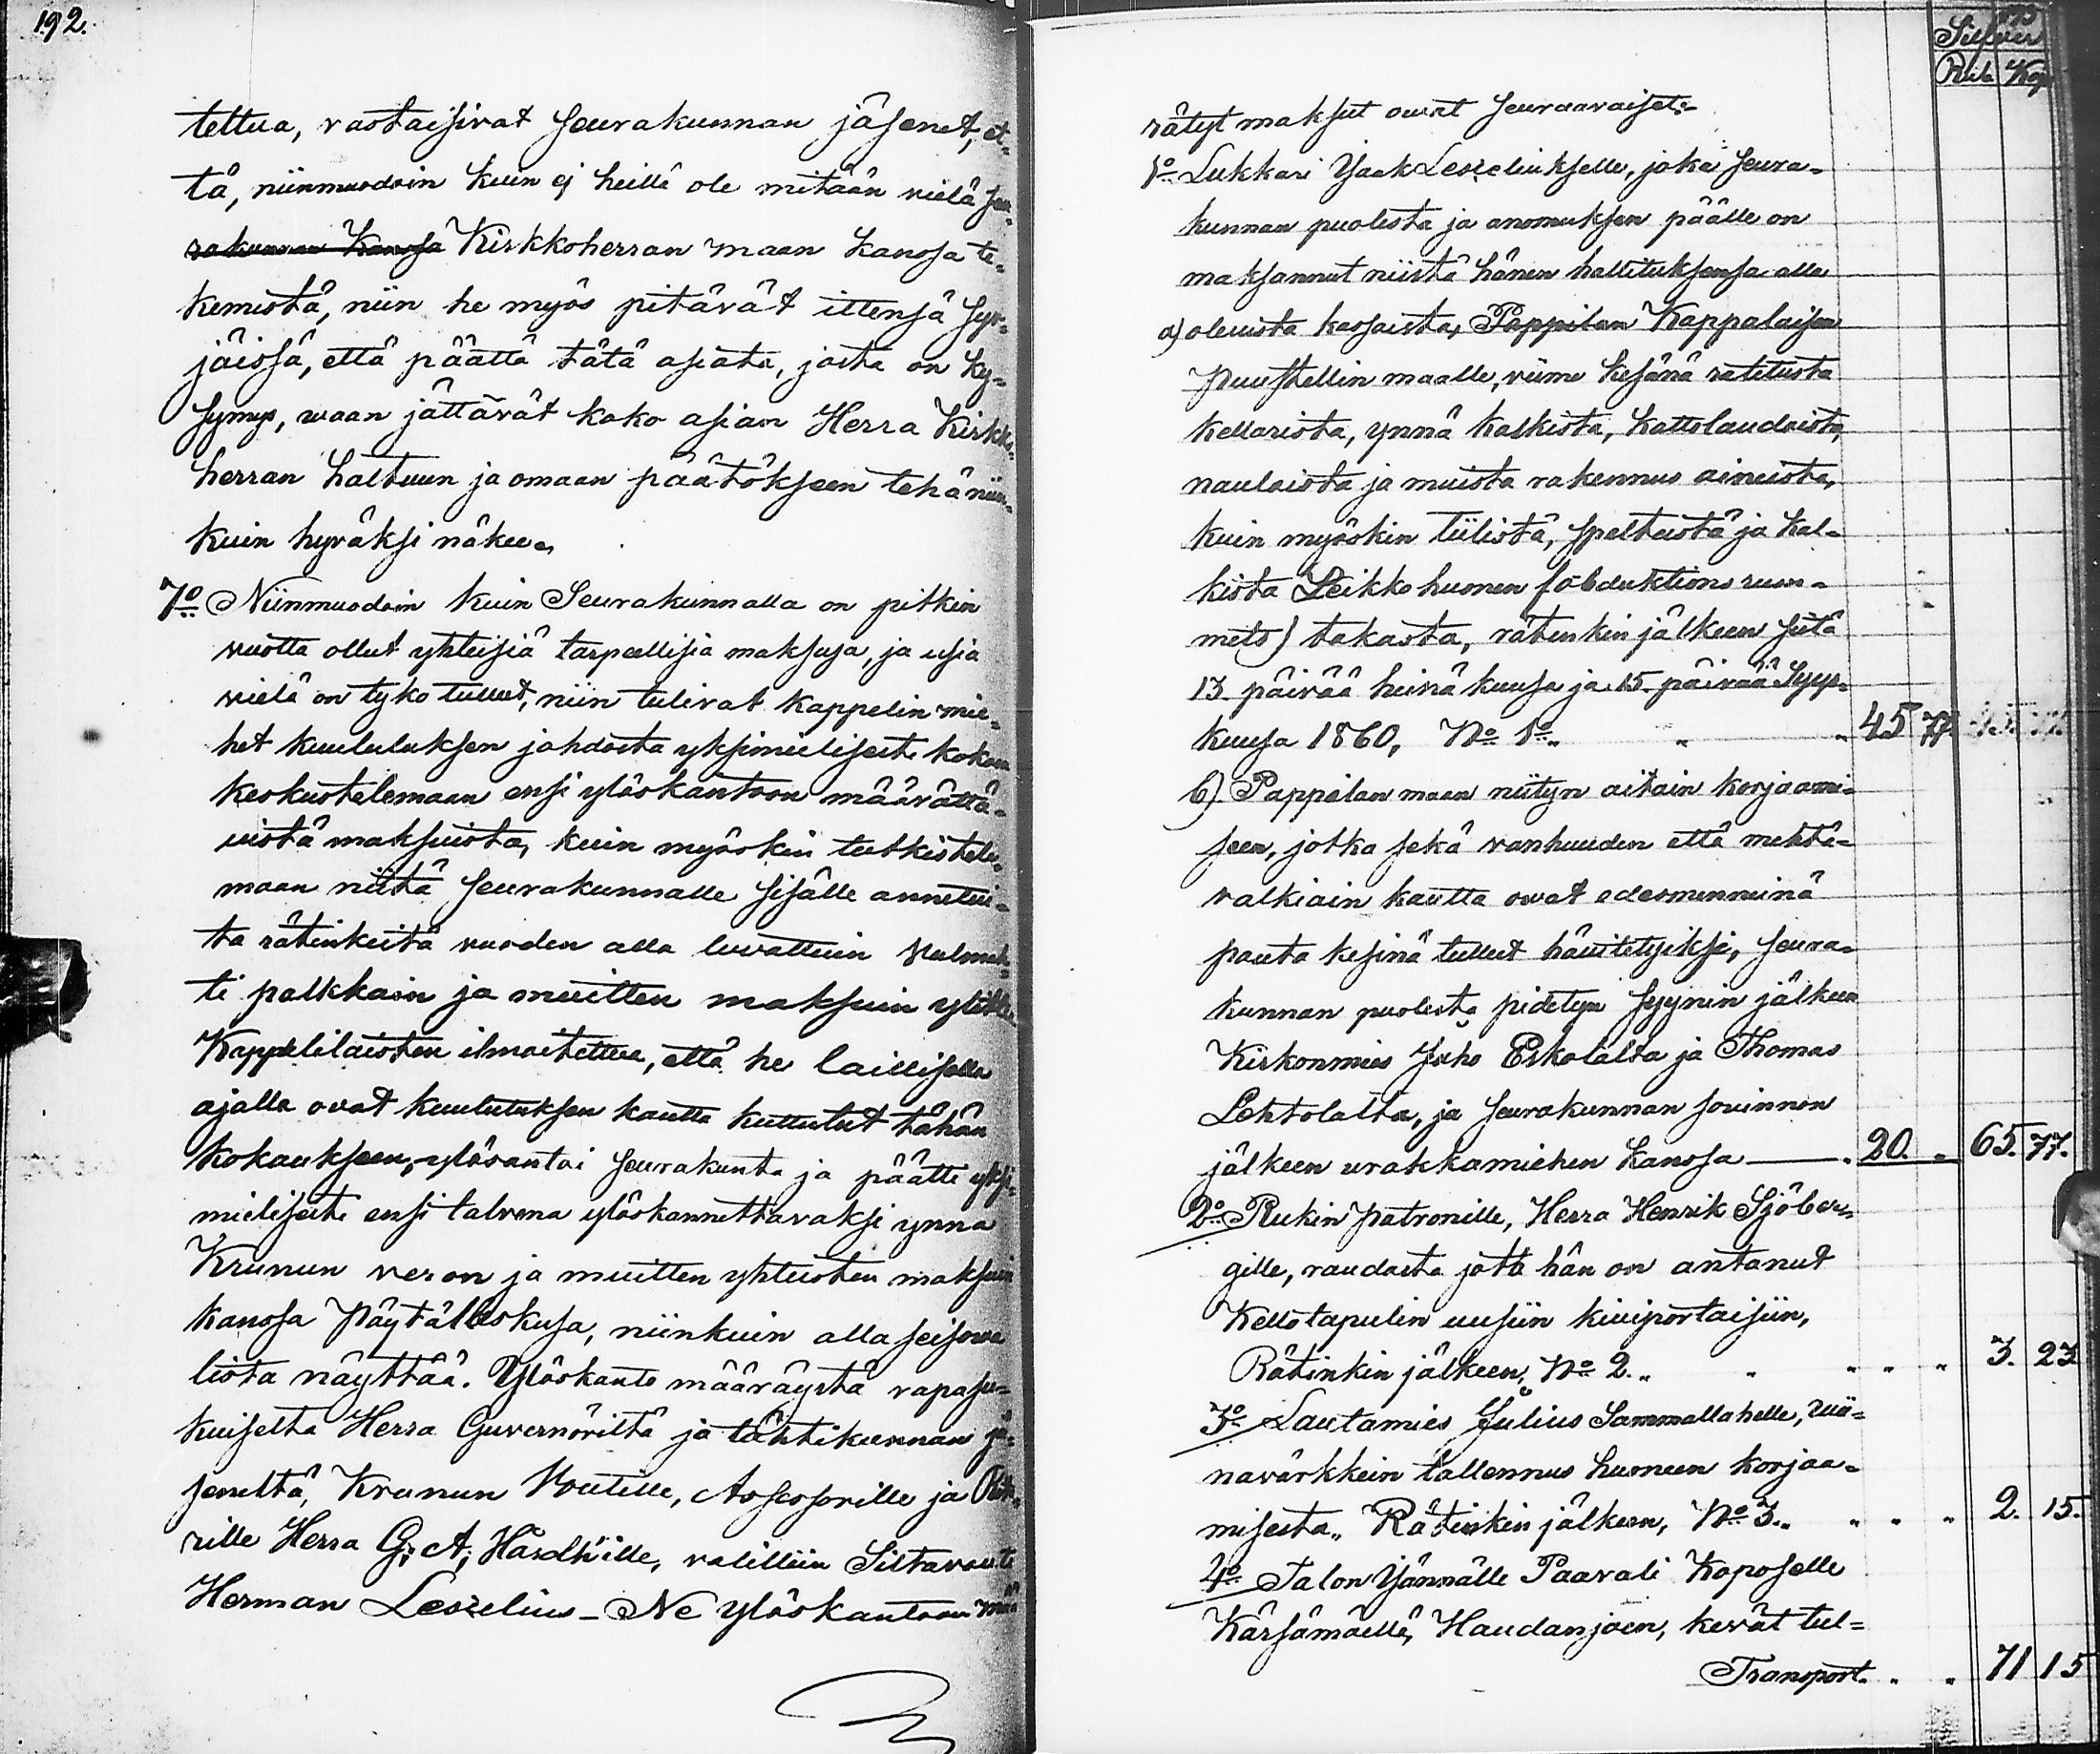 192.
teltua, vastaisivat seurakunnan jäsenet, et-
tä, niinmuodoin kuin ej heillä ole mitään vielä seu-
rakunnan kanssa Kirkkoherran maan kanssa te-
kemistä, niin he myös pitävät ittensä syr-
jäissä, että päättä tätä asiata, josta on ky-
symys, waan jättävät koko asian Herra Kirkko-
herran haltuun ja omaan päätökseen tehä niin-
kuin hyväksi näkee.
7o Niinmuodoin kuin Seurakunnalla on pitkin
vuotta ollut yhteisiä tarpeellisia maksuja, ja usia
vielä on tyko tullut, niin tulivat kappelin mie-
het kuulutuksen johdosta yksimielisesti kokoon
keskustelemaan ensi ylöskantoon määrättä-
uistä maksuista, kuin myöskin tutkistele-
maan niitä seurakunnalle sisälle annetui-
ta rätinkeitä vuoden alla luvattuin
ti palkkain ja muitten maksuin ylitse
Kappelilaisten ilmoitettua, että he laillisella
ajalla ovat kuulutuksen kautta kuttutut tähän
kokoukseen, ylösantoi seurakunta ja päätti yksi-
mielisesti ensi talvena ylöskannettavaksi ynna
Krunun veron ja muitten yhteisten maksuin
kanssa Päytälaskusa, niinkuin alla seisova
lista näyttää. Ylöskanto määräystä vapasu-
kuiselta Herra Guvernöriltä ja tähtikunnan jä-
seneltä, Krunun Voutille, Assessorille ja Rit-
rille Herra G; A; Hårdhille, valittiin Siltavouti
Herman Leszelius - Ne ylöskantoon mää
Silfver
Rub. Kop.
rätyt maksut owat seuraavaiset:
1o Lukkari Isaak Leszeliukselle, joka seura-
kunnan puolesta ja anomuksen päälle on
maksannut niistä hänen hallituksensa alla
a) oleuista kassoista, Pappilan Kappalaisen
puustellin maalle, viime kesänä ratetusta
kellarista, ynnä kalkista, kattolaudoista,
nauloista ja muista rakennus aineista,
kuin myöskin tiilistä, speltuistä ja kal-
kista Leikko huonen (obduktions rum-
mets) takasta, rätinkin jälkeen siitä
13. päivää heinä kuusa ja 15. päivää Syys-
kuusa 1860, No 1o " " 45 77. 45. 77.
b). Pappilan maan niityn aitain korjaami-
seen, jotka sekä vanhuuden että mehtä-
valkiain kautta owat edesmenneinä
pauta kesinä tullut häuitetyiksi, seura-
kunnan puolesta pidetyn syynin jälkeen
Kirkonmies Juho Eskolalta ja Thomas
Lehtolalta, ja seurakunnan souinnon
jälkeen urakkamiehen kanssa . 20. " 65. 77.
2o Rukin patronille, Herra Henrik Sjöber-
gille, raudasta jota hän on antanut
Kellotapulin uusiin kiuiportaisiin,
Rätinkin jälkeen, No 2. " " " " " 3. 23
3o Lautamies Julius Sammallahelle, wii-
navärkkein tallennus huoneen korjaa-
misesta, Rätinkin jälkeen, No 3. " " " 2. 15.
4o Talon Isännälle Paavali Koposelle
Kärsämäellä, Haudanjoen, kevät tul-
Transport. " " 71 15